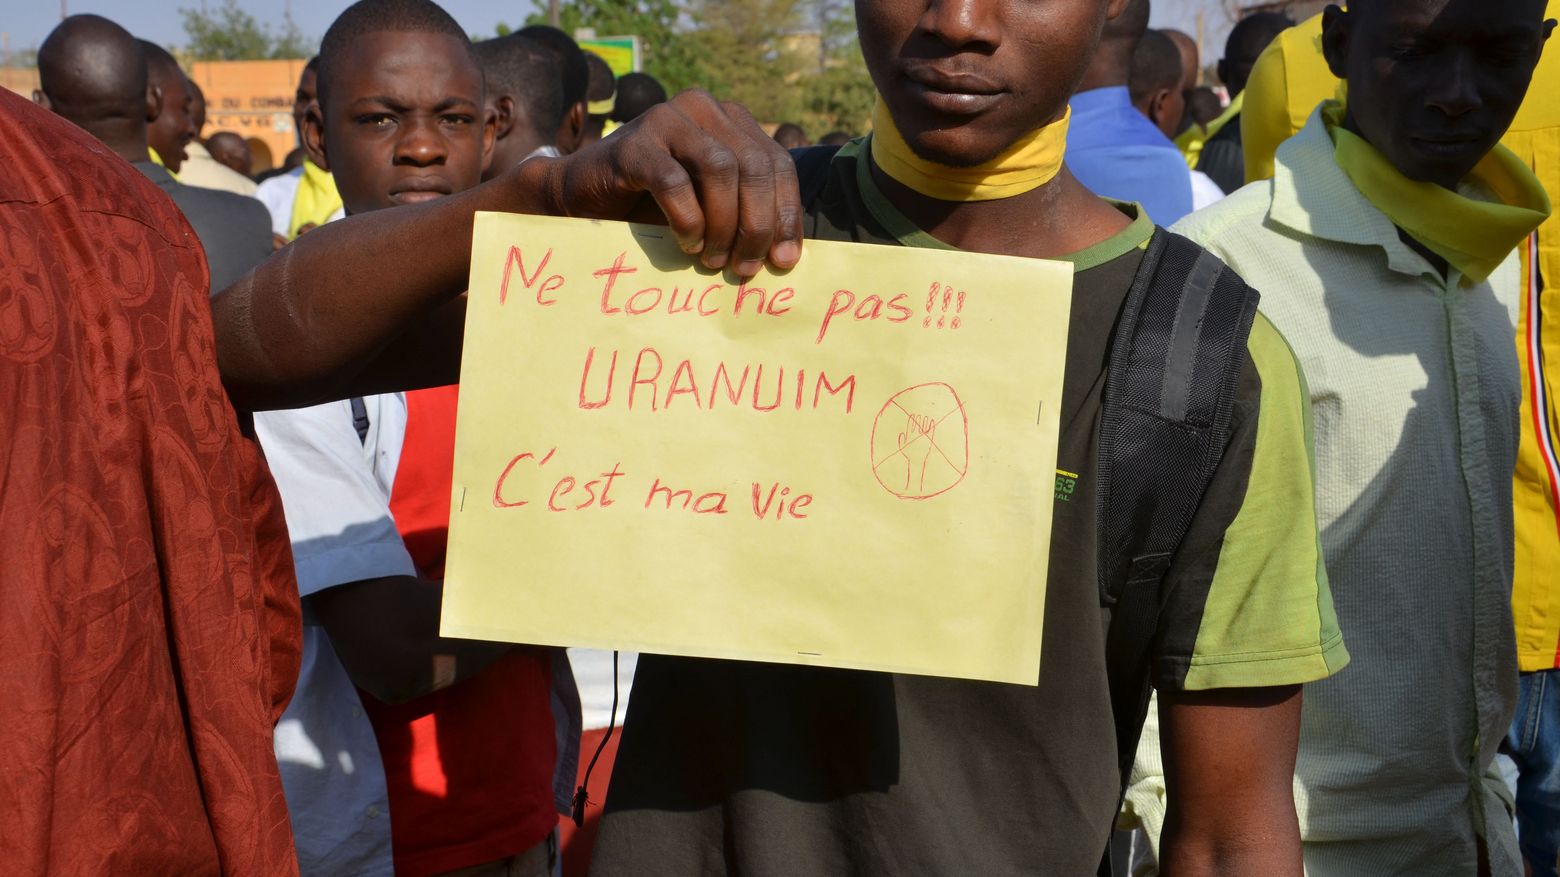 Ne touche pas!!!
URANUIM
C'est ma vie
N DU COMBA
63